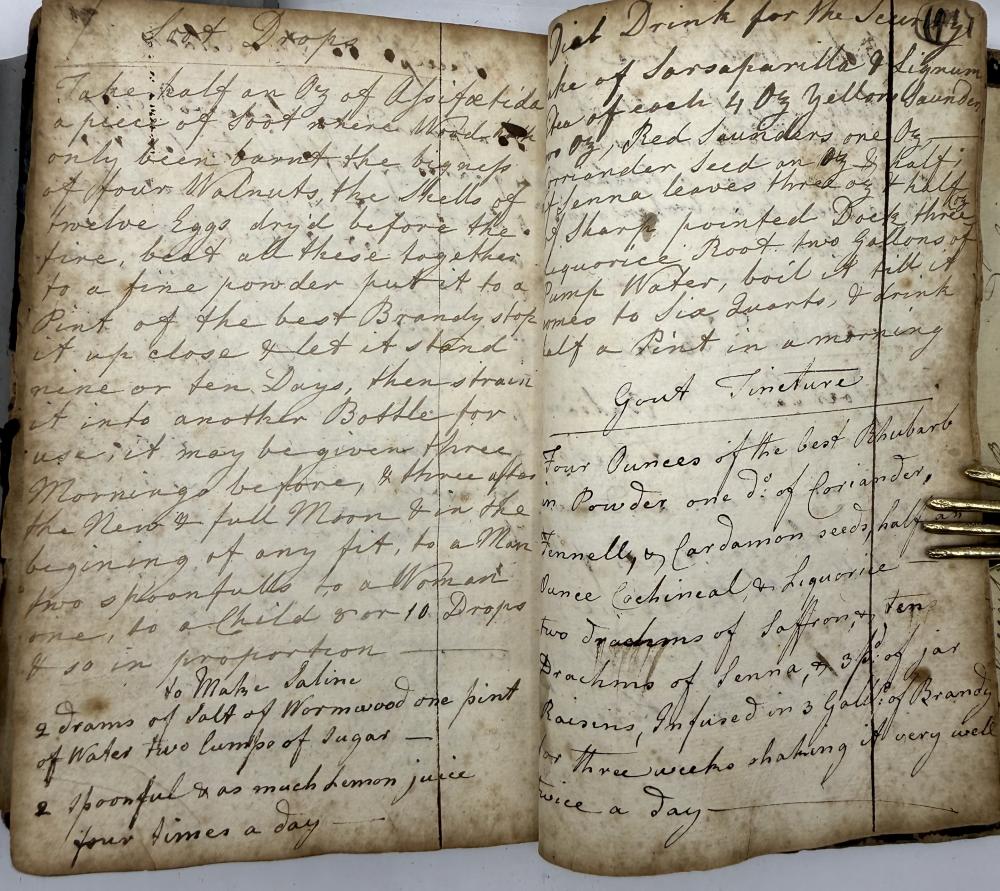 Soot Drops
Take half an Oz of Assifœtida
a piece of Soot where Wood hath
only been burnt the bigness
of four Walnuts, the Shells of
twelve Eggs dry'd before the
fire, beat all these together
to a fine powder put it to a
Pint of the best Brandy stop
it up close & let it stand
nine or ten Days, then strain
it into another Bottle for
use, it may be given three
Mornings before, & three after
the New & full Moon & in the
begining of any fit, to a Man
two spoonfulls to a Woman
one, to a Child 8 or 10 Drops
& so in proportion
to Make Saline
2 drams of Salt of Wormwood one pint
of Water two lumps of Sugar
2 Spoonful & as much Lemon juice
four times a day
Diet Drink for the Scurvy
ake of Sarsaparilla & Lignum
of each 4 Oz Yellow Saunder
Oz, Red Saunders one Oz
orriander Seed an Oz & half,
of Senna leaves three oz & half
of Sharp pointed Dock three
Liquorice Root two Gallons of
Pump Water, boil it till it
omes to Six Quarts, & drink
alf a Pint in a morning
Gout Tincture
Four Ounces of the best Rhubarb
in Powder one do. of Coriander,
Fennell, & Cardamon seeds, half an
Ounce Cochineal, & Liquorice
two drachms of Saffron, & ten
Drachms of Senna, & 3 pd. of jar
Raisins, Infused in 3 Galls. of Brandy
for three weeks shaking it very well
twice a day